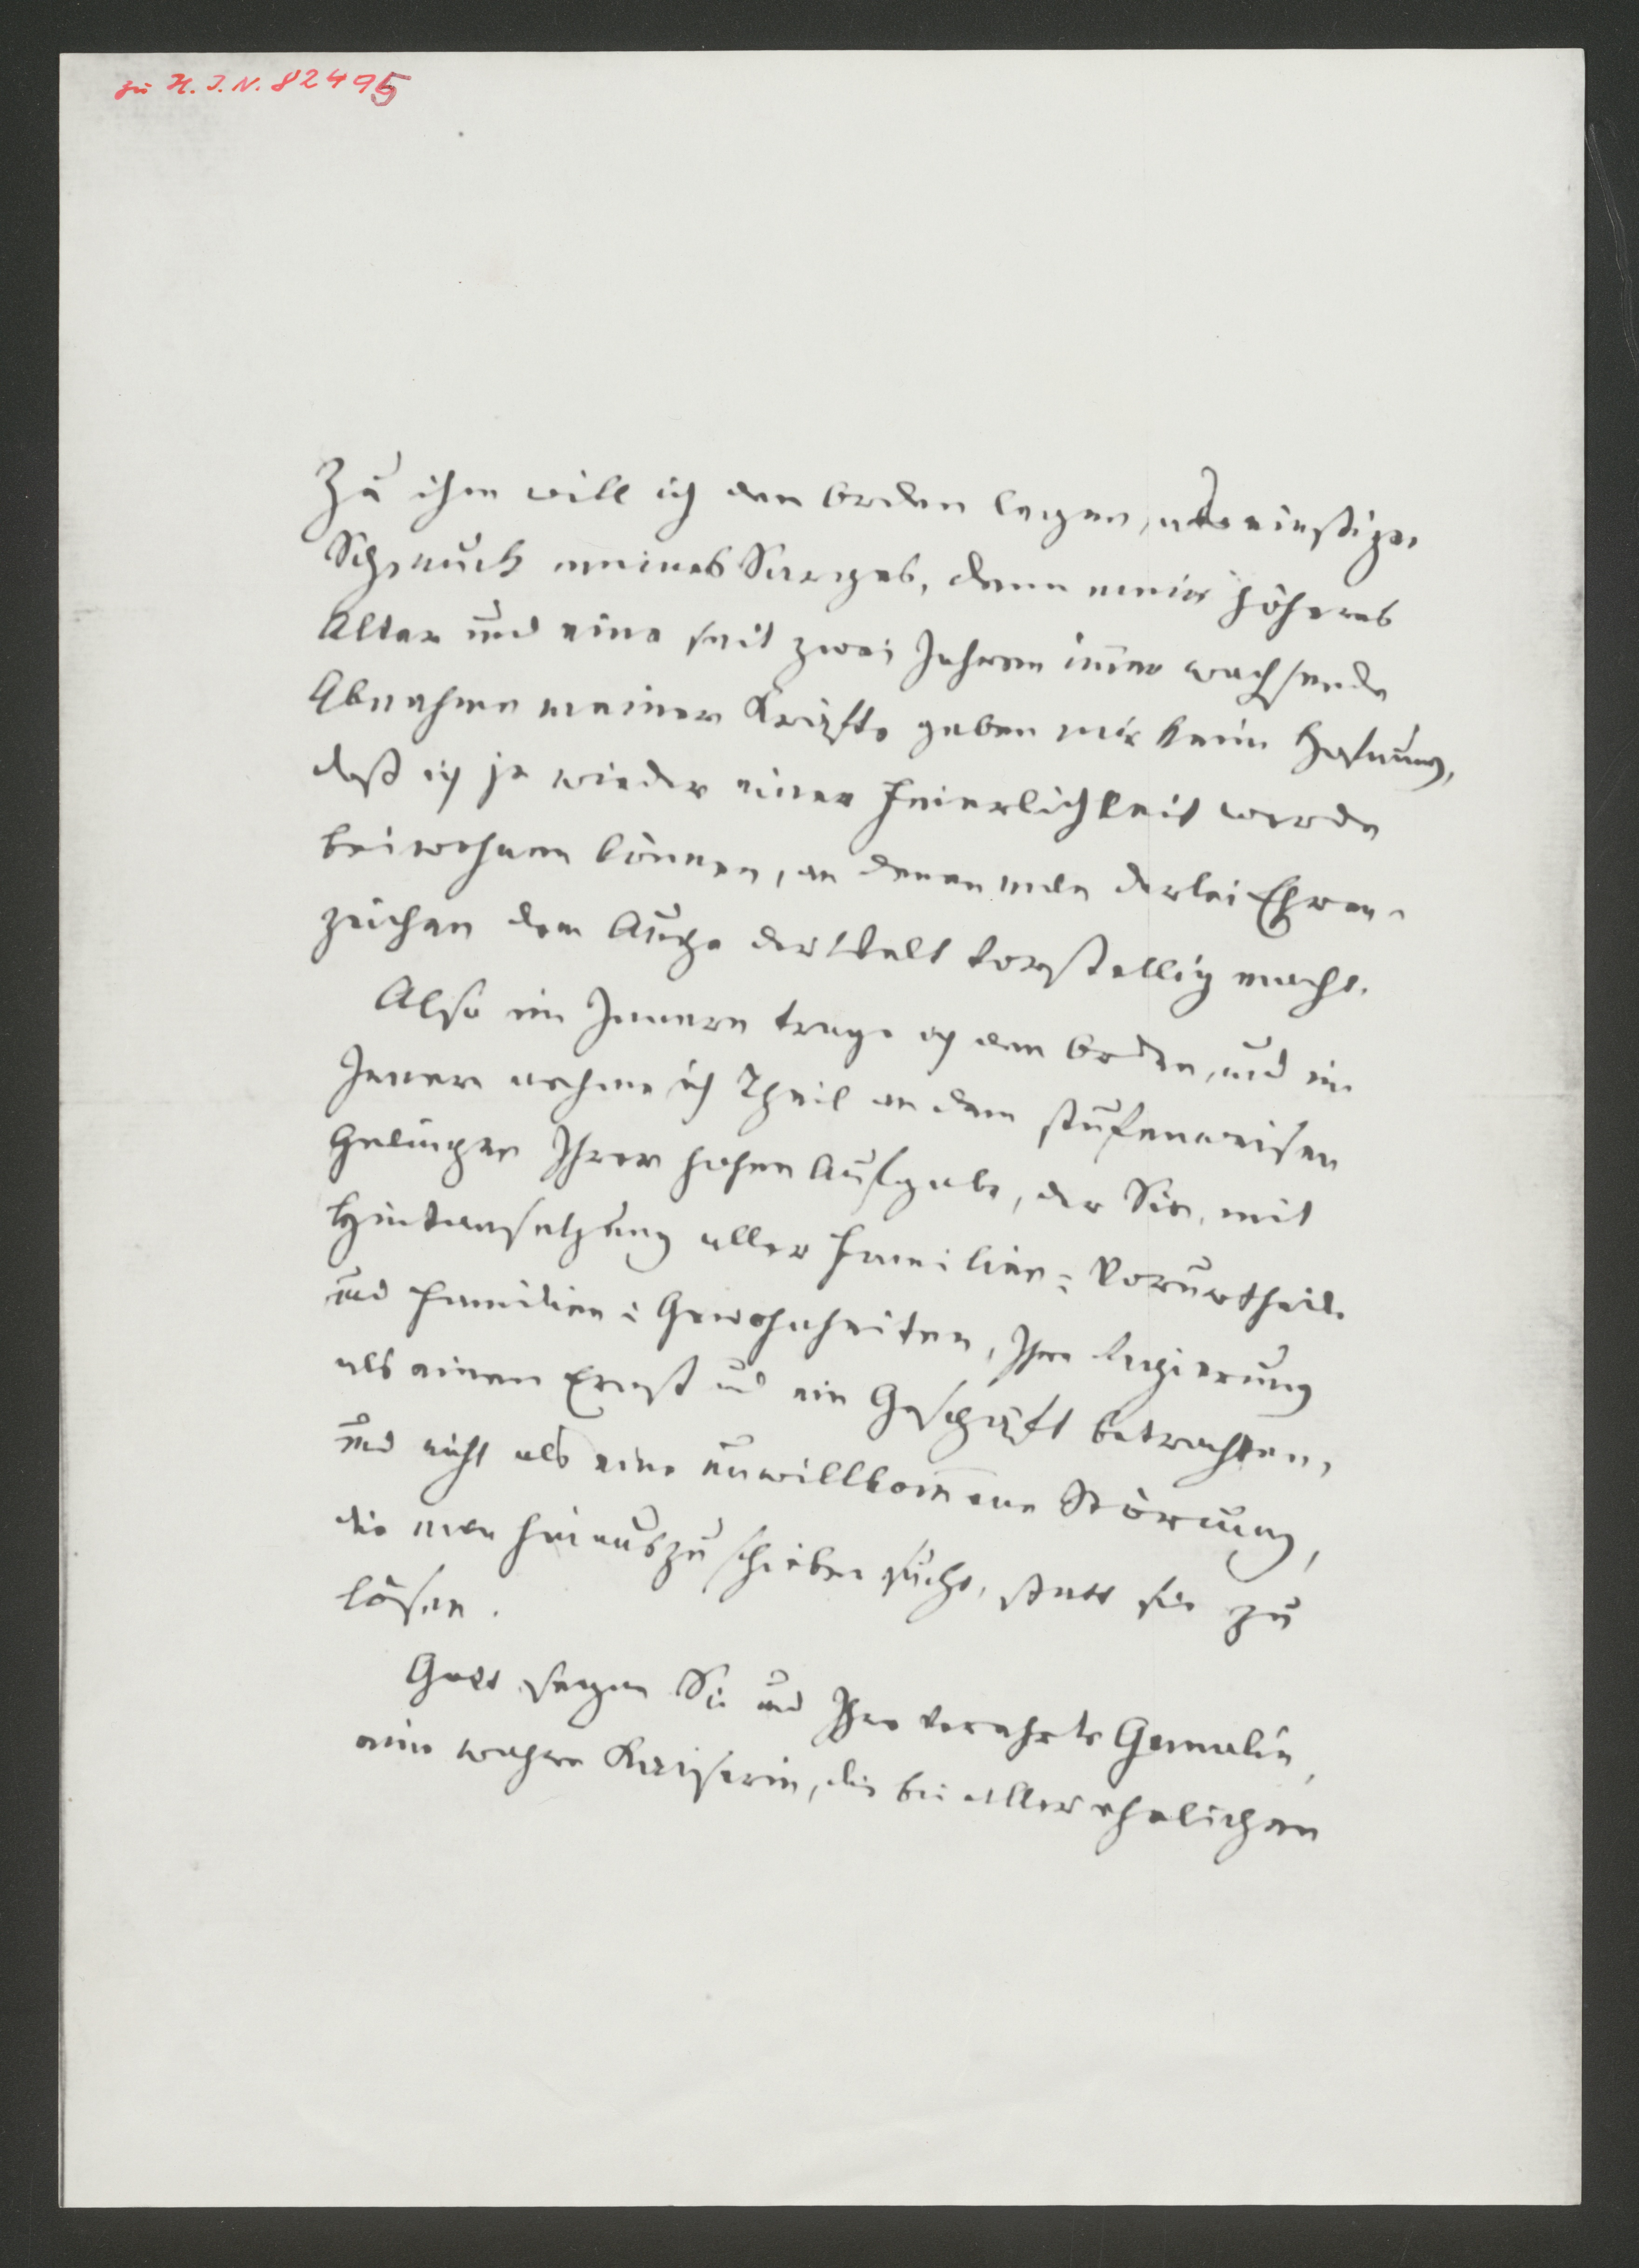 zu H. I. N. 82495
Zu ihm will ich den Orden legen, als einstigen
Schmuck meines Sarges, denn mein höheres
Alter und eine seit zwei Jahren im̄er wachsende
Abnahme meiner Kräfte geben mir keine Hofnung,
daß ich je wieder einer Feierlichkeit werde
beiwohnen können, an denen man derlei Ehren-
zeichen dem Auge der Welt vorstellig macht.
Also im Innern trage ich den Orden, und im
Innern nehme ich Theil an dem stufenweisen
Gelingen Ihrer hohen Aufgabe, der Sie, mit
Hintansetzung aller Familien-Vorurtheile
und Familien-Gewohnheiten, Ihre Regierung
als einen Ernst und ein Geschäft betrachten,
und nicht als eine unwillkom̄ene Störung,
die man hinauszuschieben sucht, statt sie zu
lösen.
Gott segne Sie und Ihre verehrte Gemalin,
eine wahre Kaiserin, die bei aller ehelichen